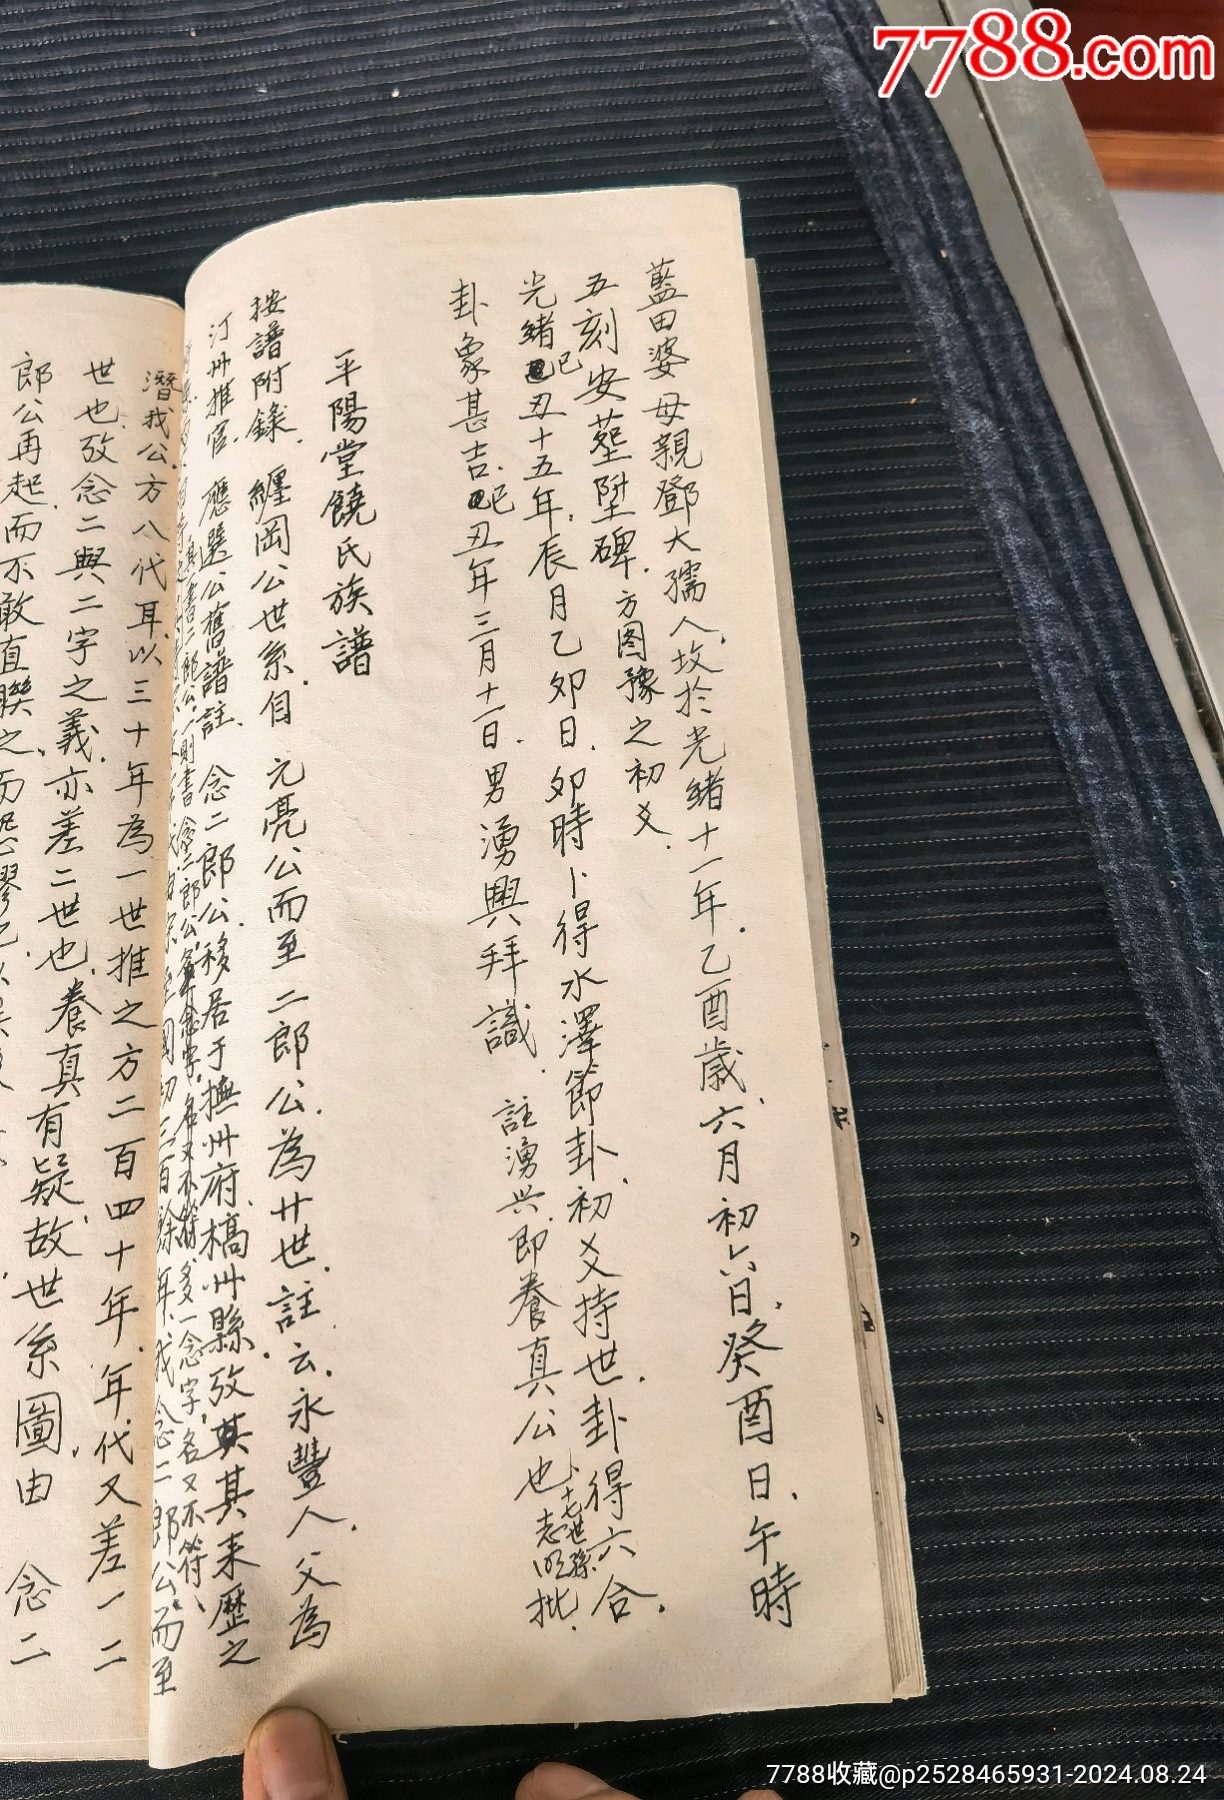 7788.com
藍田婆母親鄧大孺人坟於光緒十一年.乙酉歲.六月初六日.癸酉日.午時
五刻安塟陞碑.方图豫之初爻.
光緒己丑十五年.辰月乙夘日.夘時卜得水澤節卦.初爻持世.卦得六合.
卦象甚吉.己丑年三月十一日.男湧興拜識.註湧兴即養真公也
十七世孫
志明批.
平陽堂饒氏族譜
按譜附錄.纏岡公世系.自元亮公而至二郎公.為廿世.註云.永豐人.父為
汀州推官.應選公舊譜註.念二郎公.移居于撫州府.槁州縣.攷其来歷之
書二郎公.一則書念二郎公.
多一念字.名又不符.
國初三百餘年.我念二郎公.而至
潛我公.方八代耳.以三十年為一世推之.方二百四十年.年代又差一二
世也.攷念二與二字之義.亦差二世也.養真有疑.故世系圖.由念二
郎公再起.而不敢直聯之
7788收藏@p2528465931-2024.08.24